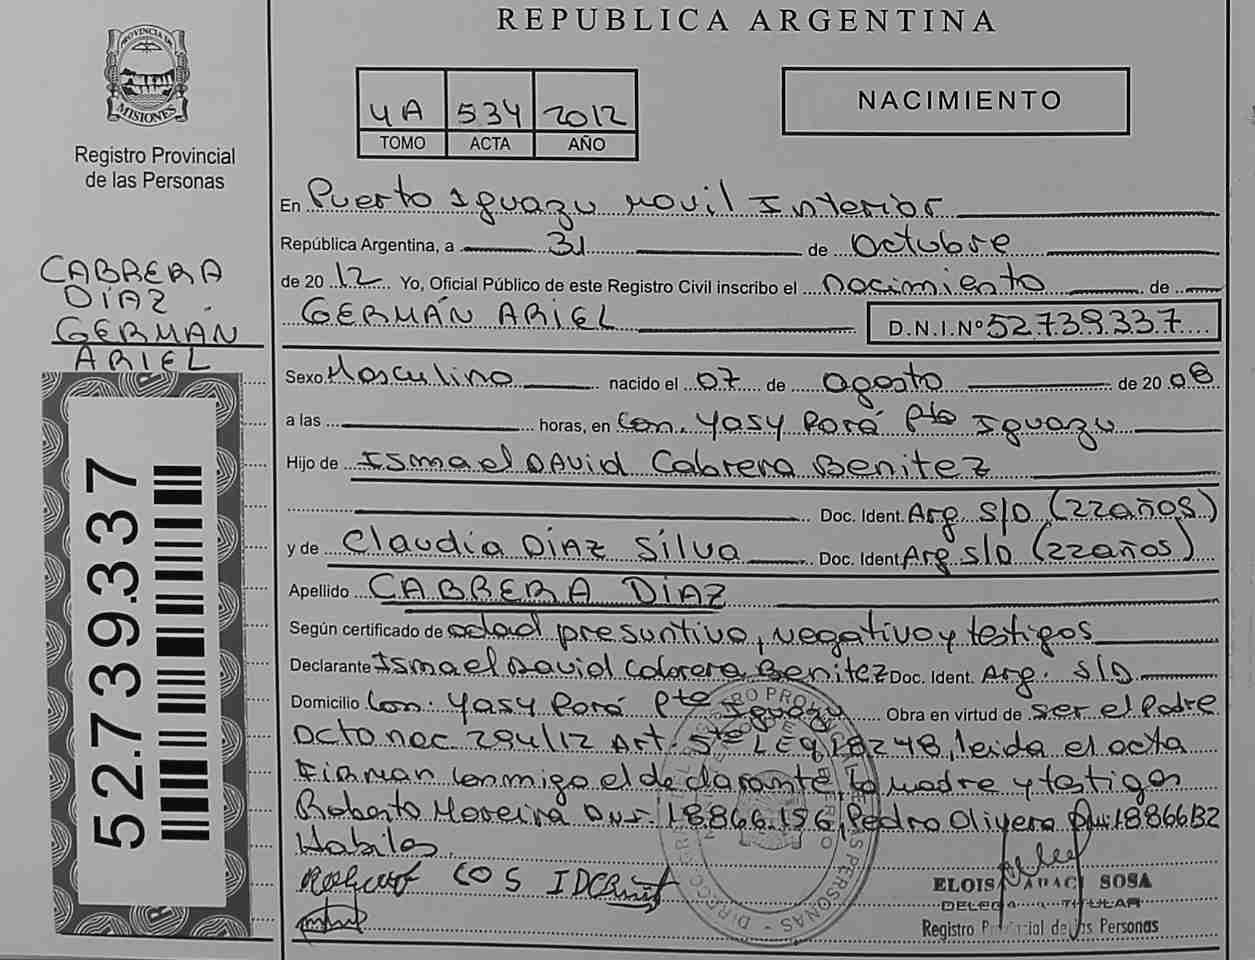 REPUBLICA ARGENTINA
PROVINCIA DE
MISIONES
Registro Provincial
de las Personas
4A 534 2012
TOMO ACTA AÑO
NACIMIENTO
CABRERA
DÍAZ
GERMÁN
ARIEL
52.739.337
En Puerto Iguazu Movil Interior
República Argentina, a 31 de Octubre
de 2012 Yo, Oficial Público de este Registro Civil inscribo el nacimiento de
GERMÁN ARIEL D.N.I.Nº 52.739.337
Sexo Masculino nacido el 07 de agosto de 2008
a las horas, en Com. Yasy Porá Pto Iguazu
Hijo de Ismael David Cabrera Benitez
Doc. Ident. Arg. S/D (22años)
y de Claudia Díaz Silva Doc. Ident. Arg. S/D (22años)
Apellido CABRERA DÍAZ
Según certificado de edad presuntiva, negativo y testigos
Declarante Ismael David Cabrera Benitez Doc. Ident. Arg. S/D
Domicilio Com. Yasy Porá Pto Iguazu Obra en virtud de ser el Padre
Dcto nac. 294/12 Art. 5to LEY 18248, leida el acta
Firman conmigo el declarante, la madre y testigos
Roberto Moreira DNI. 18866.156, Pedro Olivera
Habiles.
ELOISA SOSA
TITULAR
Registro Provincial de las Personas